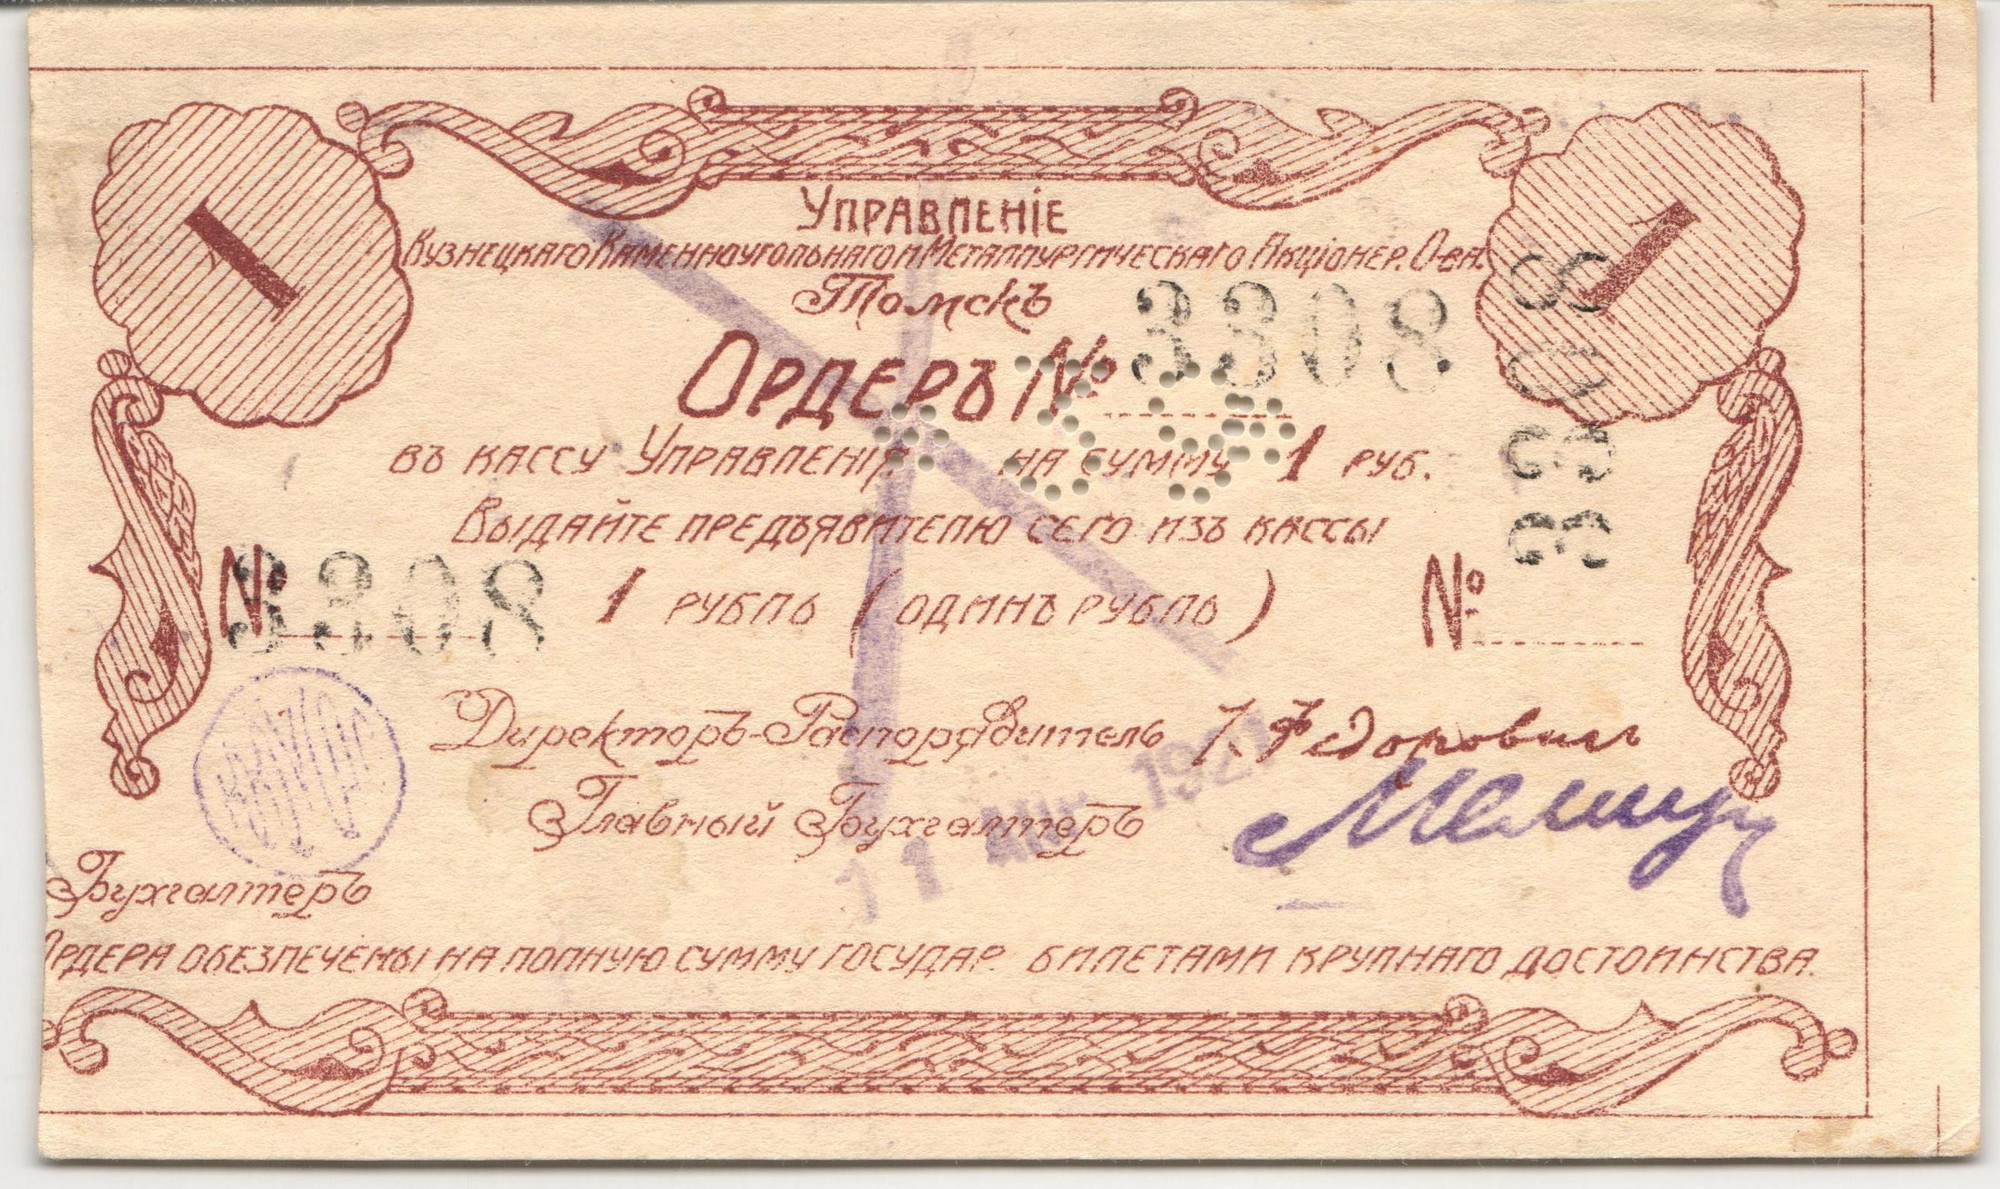 1
1
Управленіе
Кузнецкаго Каменноугольнаго и Металлургическаго Акціонер. О-ва.
Томскъ
Ордеръ № 3308
3308
въ кассу Управленія на сумму 1 руб.
Выдайте предъявителю сего изъ кассы
№ 3308
1 рубль (один рубль)
№
Директоръ-Распорядитель І. Федорович
Главный Бухгалтеръ
11 Апр 192
Бухгалтеръ
Ордера обезпечены на полную сумму государ. билетами крупнаго достоинства.